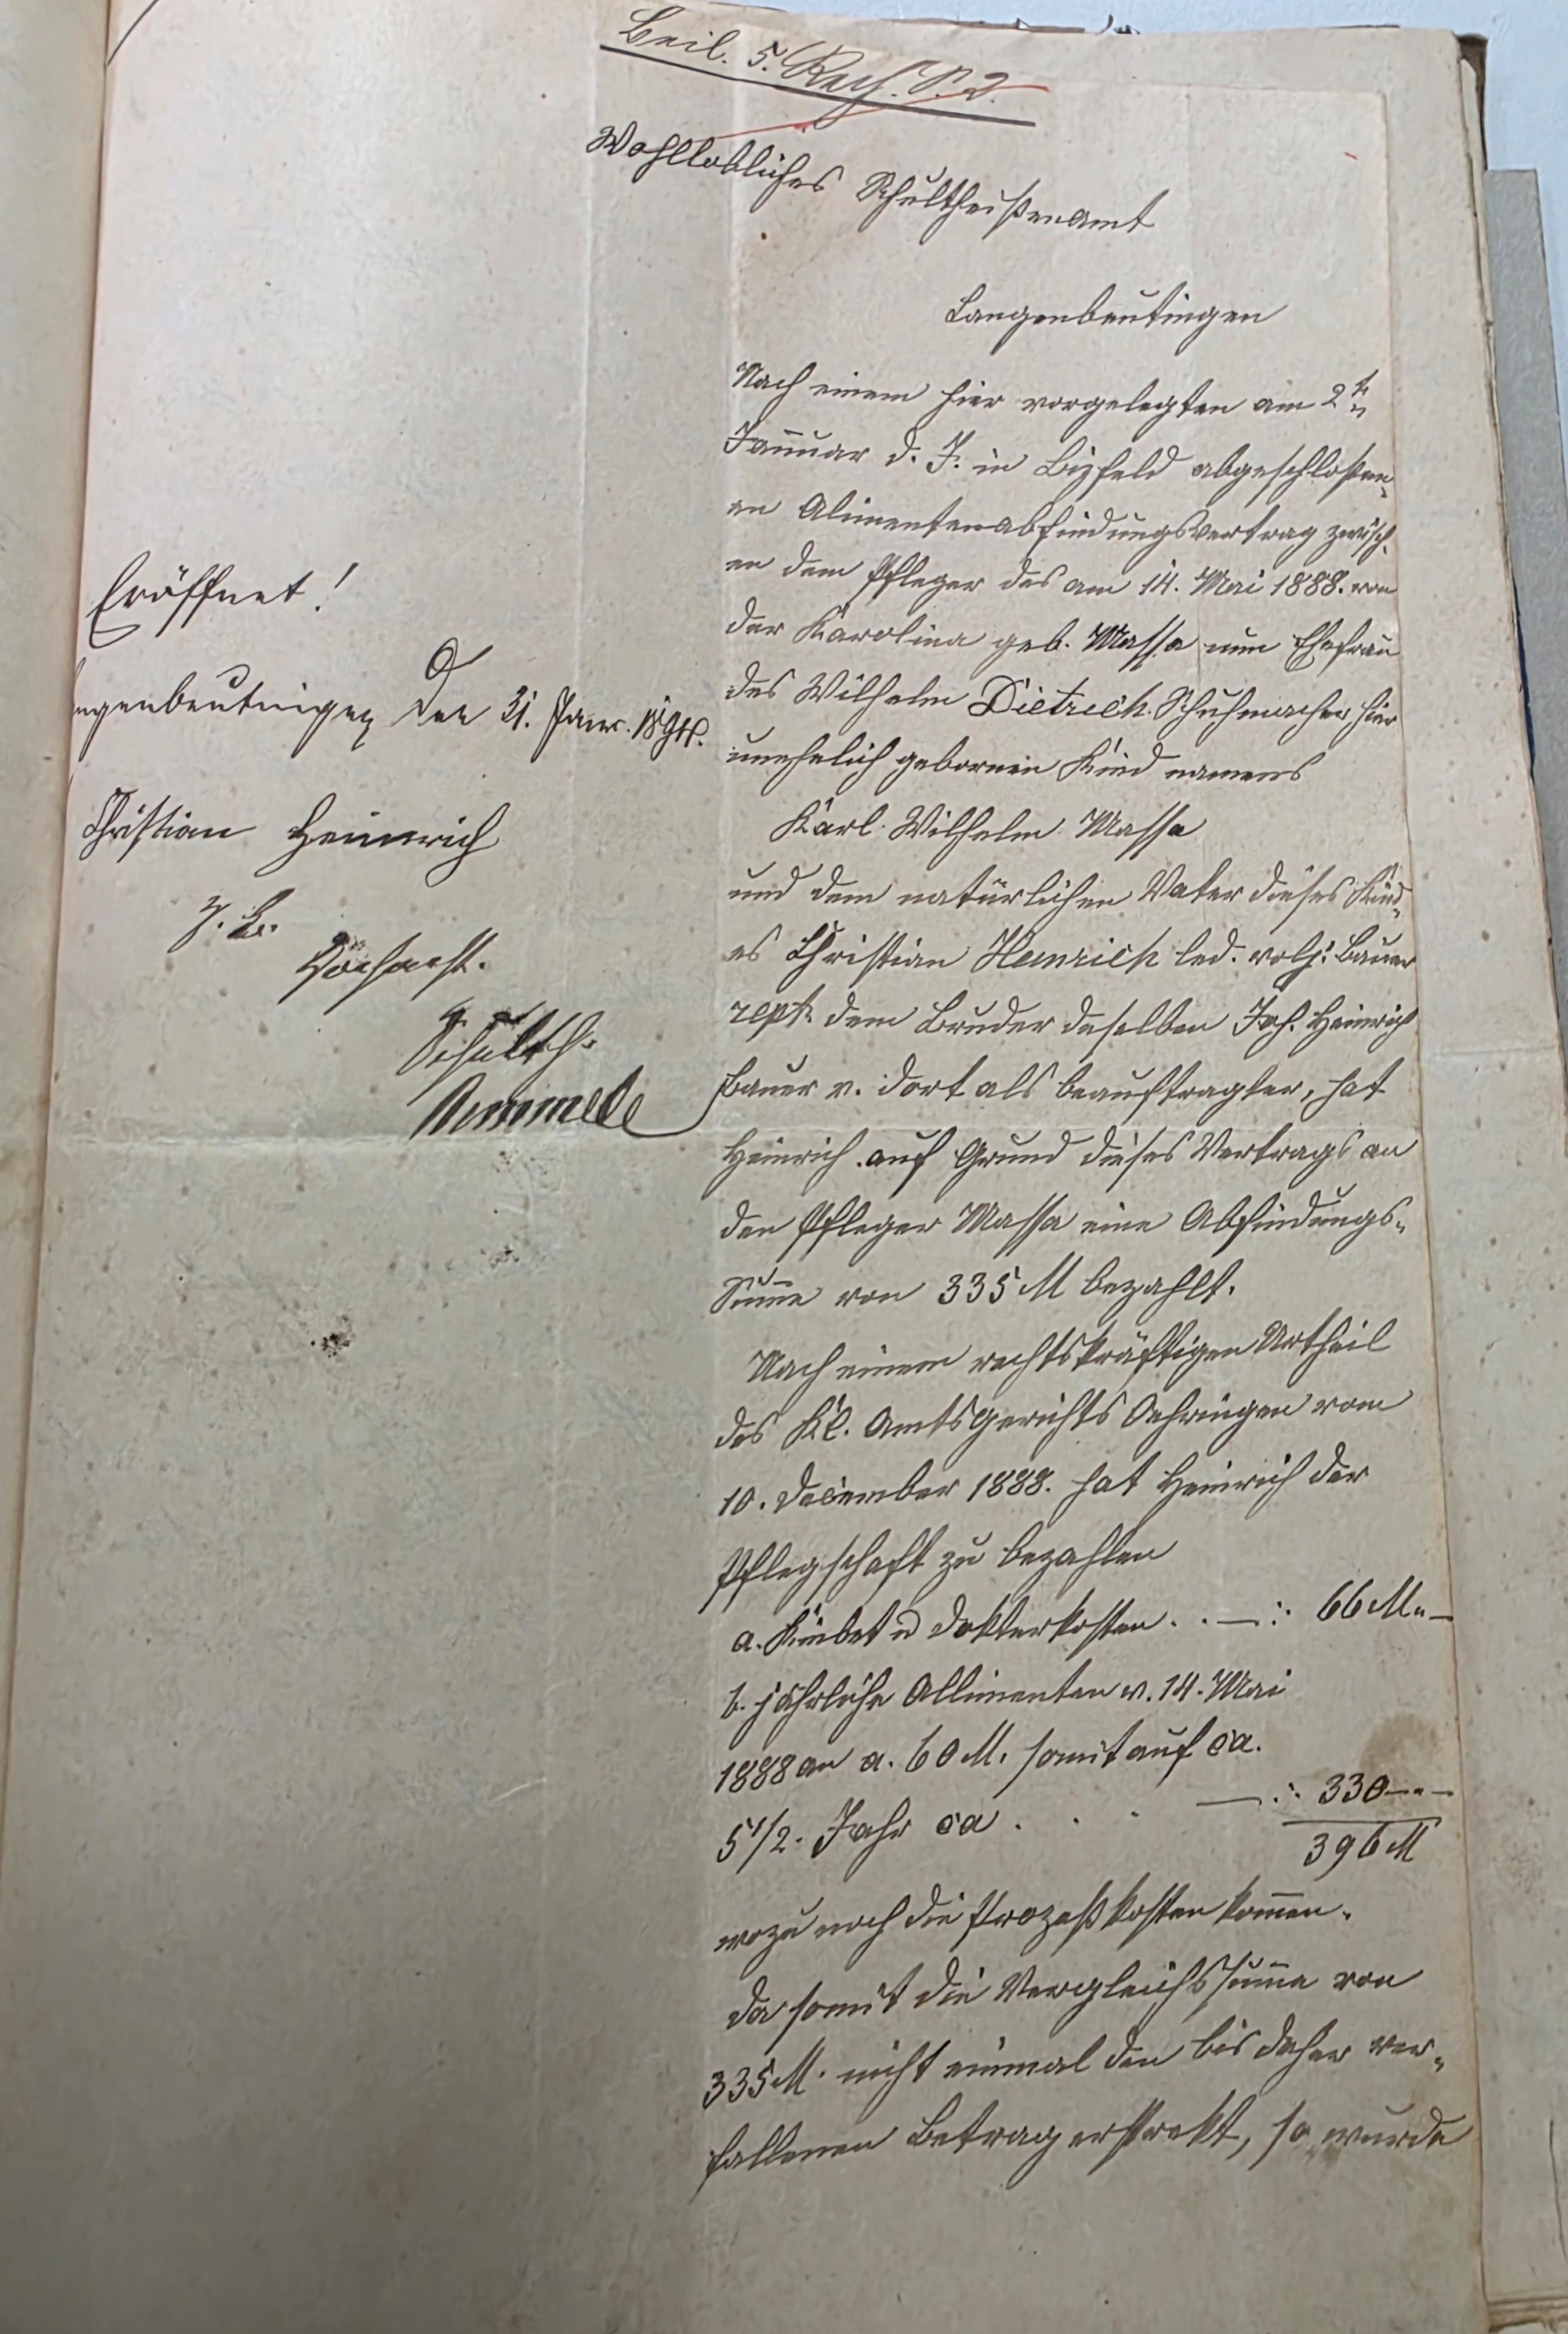 Beil. 5. Rech. S. 2.
Wohllöbliches Schultheißenamt
Langenbeutingen
Nach einem hier vorgelegten am 2t.
Januar d. J. in Bizfeld abgeschloßen-
en Alimentenabfindungsvertrag zwisch-
en dem Pfleger des am 14. Mai 1888. von
der Karolina geb. Massa nun Ehefrau
des Wilhelm Dietrich Schuhmacher, hier
unehelich gebornen Kind namens
Karl Wilhelm Massa
und dem natürlichen Vater dieses Kind-
es Christian Heinrich led. vollj. Bauer
rept. dem Bruder deselben Joh. Heinrich
Bauer v. dort als beauftragter, hat
Heinrich auf Grund dieses Vertrags an
den Pfleger Massa eine Abfindungs-
Summe von 335 M bezahlt.
Nach einem rechtskräftigen Urtheil
des Kl. Amtsgerichts Oehringen vom
10. December 1888. hat Heinrich der
Pflegschaft zu bezahlen
a. Kinbet u Dokterkosten . . — : 66 M. —
b. jährliche Allimenten v. 14. Mai
1888 an a. 60 M. somit auf ca.
5 1/2. Jahr ca . . . — : 330 —
396 M
wozu noch die Prozeßkosten kommen.
Da somit die Vergleichssumme von
335 M. nicht einmal den bis daher ver-
fallenen Betrag erstrekt, so wurde
Eröffnet!
ngenbeutingen den 31. Janr. 1894.
Christian Heinrich
Z. B.
Schulth.